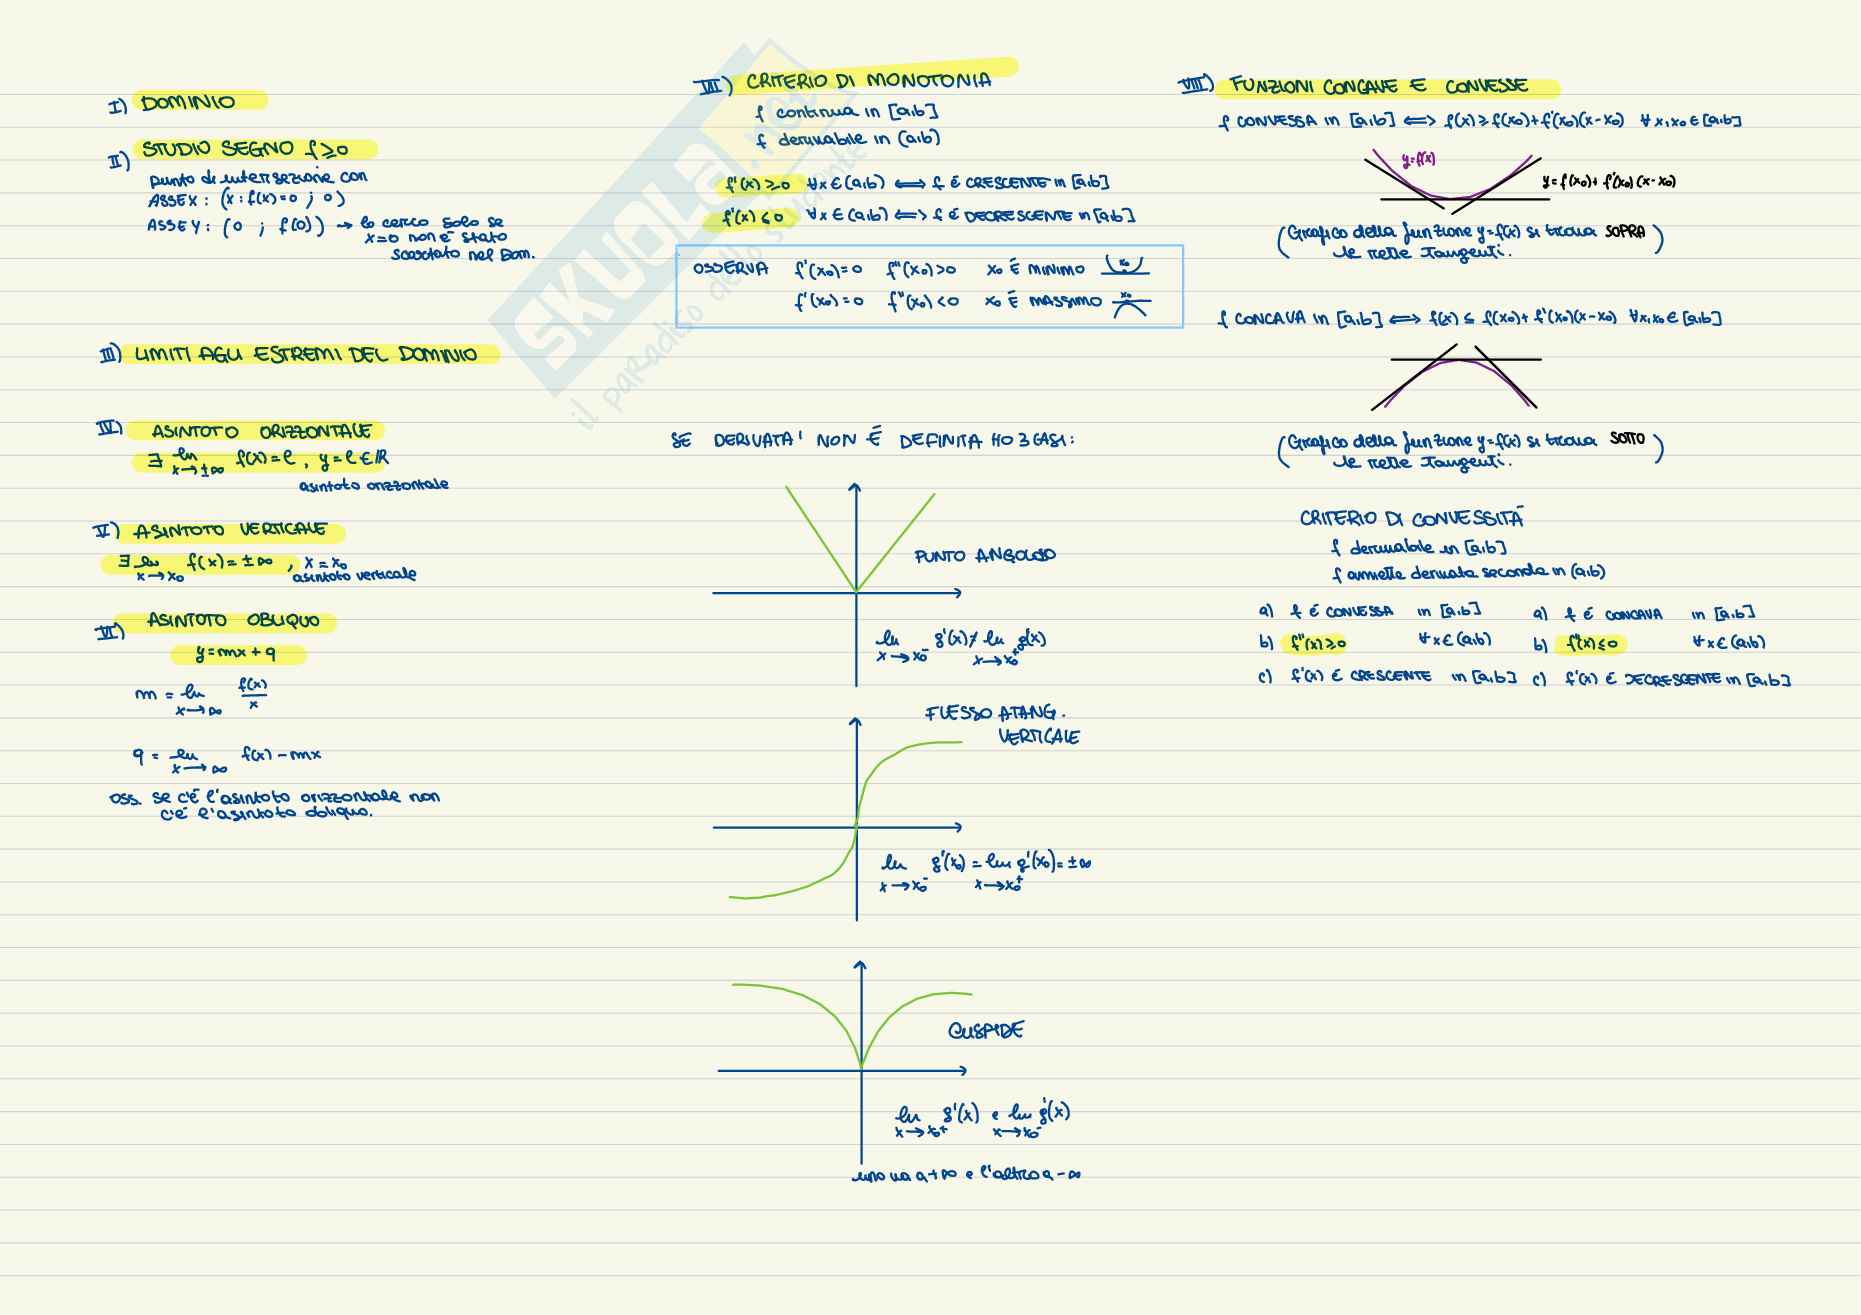 I) DOMINIO
II) STUDIO SEGNO f ≥ 0
punto di intersezione con
ASSE X : (x : f(x)=0 ; 0)
ASSE Y : (0 ; f(0)) → lo cerco solo se
x=0 non è stato
scartato nel Dom.
III) LIMITI AGLI ESTREMI DEL DOMINIO
IV) ASINTOTO ORIZZONTALE
∃ lim x→±∞ f(x)=ℓ , y=ℓ ∈ ℝ
asintoto orizzontale
V) ASINTOTO VERTICALE
∃ lim x→x₀ f(x)=±∞ , x=x₀
asintoto verticale
VI) ASINTOTO OBLIQUO
y=mx+q
m = lim x→∞ f(x)/x
q = lim x→∞ f(x)-mx
OSS. se c'è l'asintoto orizzontale non
c'è l'asintoto obliquo.
VII) CRITERIO DI MONOTONIA
f continua in [a,b]
f derivabile in (a,b)
f'(x) ≥ 0 ∀x ∈ (a,b) ⟺ f è CRESCENTE in [a,b]
f'(x) ≤ 0 ∀x ∈ (a,b) ⟺ f è DECRESCENTE in [a,b]
OSSERVA f'(x₀)=0 f''(x₀)>0 x₀ È MINIMO x₀
f'(x₀)=0 f''(x₀)<0 x₀ È MASSIMO x₀
SE DERIVATA' NON È DEFINITA HO 3 CASI:
PUNTO ANGOLOSO
lim x→x₀⁻ g'(x) ≠ lim x→x₀⁺ g'(x)
FLESSO A TANG.
VERTICALE
lim x→x₀⁻ g'(x₀) = lim x→x₀⁺ g'(x₀) = ±∞
CUSPIDE
lim x→x₀⁺ g'(x) e lim x→x₀⁻ g'(x)
uno va a +∞ e l'altro a -∞
VIII) FUNZIONI CONCAVE E CONVESSE
f CONVESSA in [a,b] ⟺ f(x) ≥ f(x₀)+f'(x₀)(x-x₀) ∀x,x₀ ∈ [a,b]
y=f(x)
y=f(x₀)+f'(x₀)(x-x₀)
(Grafico della funzione y=f(x) si trova SOPRA
le rette tangenti.)
f CONCAVA in [a,b] ⟺ f(x) ≤ f(x₀)+f'(x₀)(x-x₀) ∀x,x₀ ∈ [a,b]
(Grafico della funzione y=f(x) si trova SOTTO
le rette tangenti.)
CRITERIO DI CONVESSITÀ
f derivabile in [a,b]
f ammette derivata seconda in (a,b)
a) f è CONVESSA in [a,b] a) f è CONCAVA in [a,b]
b) f''(x) ≥ 0 ∀x ∈ (a,b) b) f''(x) ≤ 0 ∀x ∈ (a,b)
c) f'(x) è CRESCENTE in [a,b] c) f'(x) è DECRESCENTE in [a,b]
SKUOLA.net
il paradiso dello studente